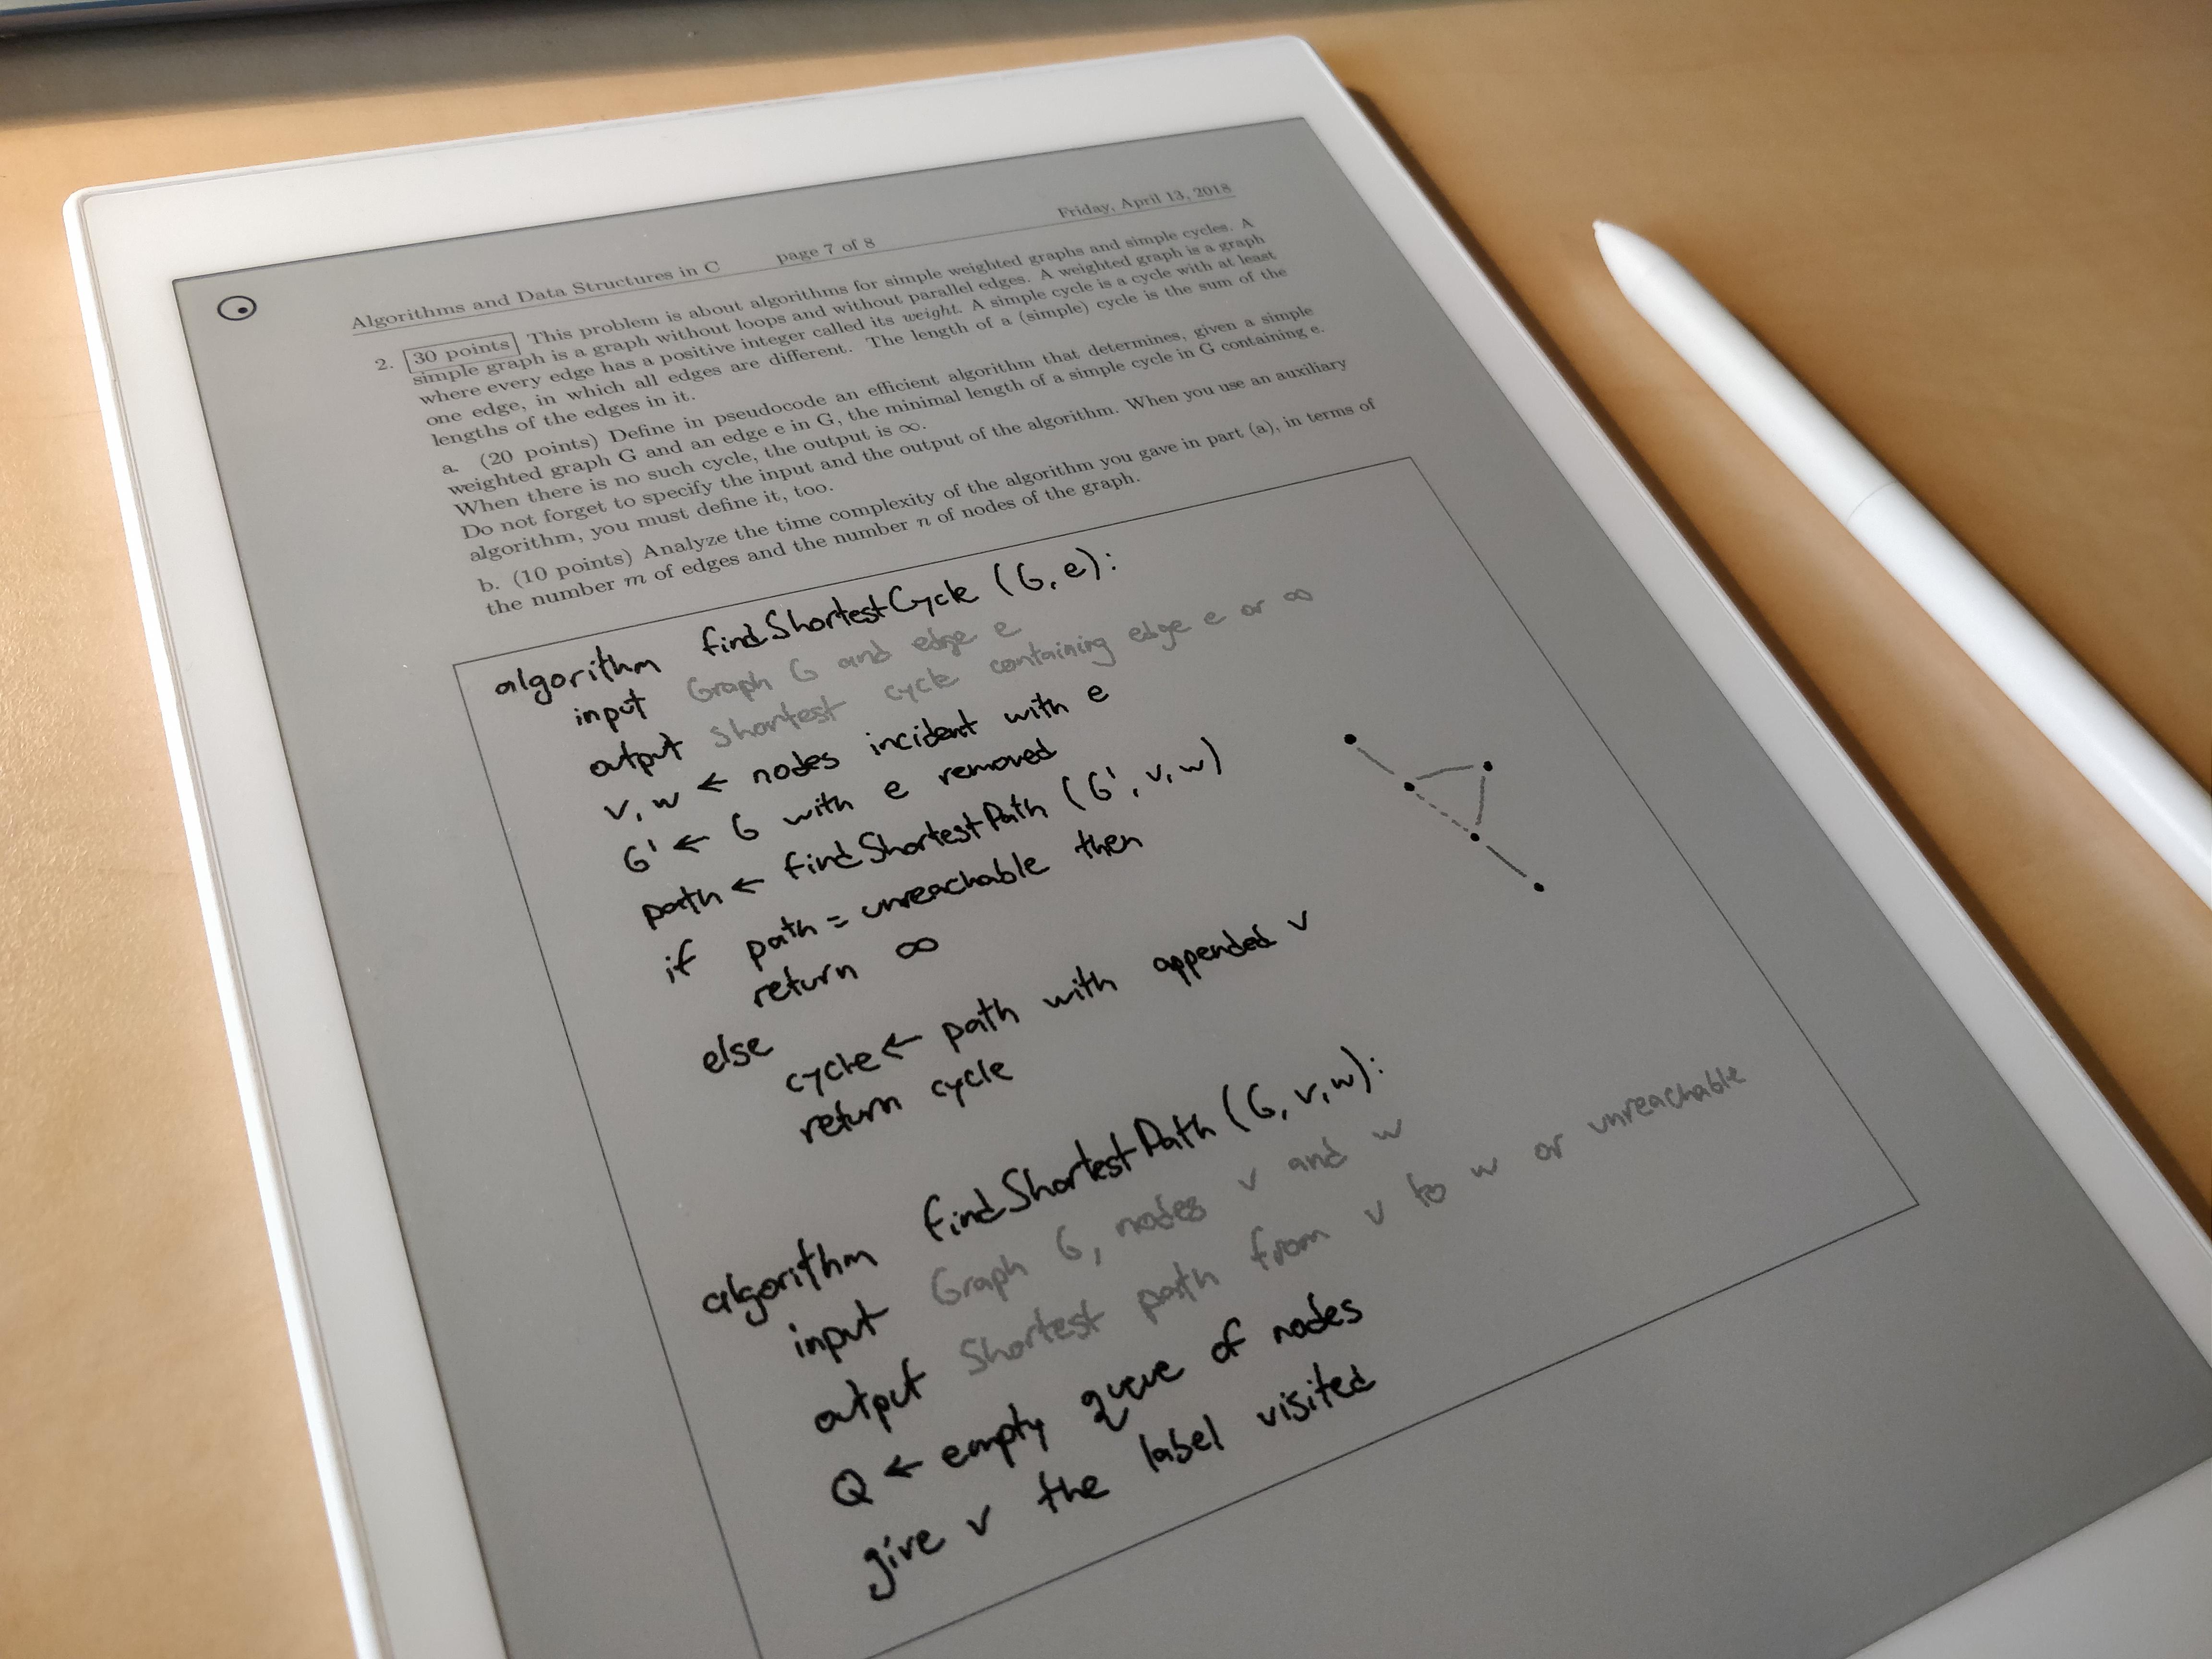 Algorithms and Data Structures in C page 7 of 8 Friday, April 13, 2018
2. 30 points This problem is about algorithms for simple weighted graphs and simple cycles. A
simple graph is a graph without loops and without parallel edges. A weighted graph is a graph
where every edge has a positive integer called its weight. A simple cycle is a cycle with at least
one edge, in which all edges are different. The length of a (simple) cycle is the sum of the
lengths of the edges in it.
a. (20 points) Define in pseudocode an efficient algorithm that determines, given a simple
weighted graph G and an edge e in G, the minimal length of a simple cycle in G containing e.
When there is no such cycle, the output is ∞.
Do not forget to specify the input and the output of the algorithm. When you use an auxiliary
algorithm, you must define it, too.
b. (10 points) Analyze the time complexity of the algorithm you gave in part (a), in terms of
the number m of edges and the number n of nodes of the graph.
algorithm findShortestCycle (G, e):
input Graph G and edge e
output shortest cycle containing edge e or ∞
v, w ← nodes incident with e
G' ← G with e removed
path ← findShortestPath (G', v, w)
if path = unreachable then
return ∞
else
cycle ← path with appended v
return cycle
algorithm findShortestPath (G, v, w):
input Graph G, nodes v and w
output Shortest path from v to w or unreachable
Q ← empty queue of nodes
give v the label visited